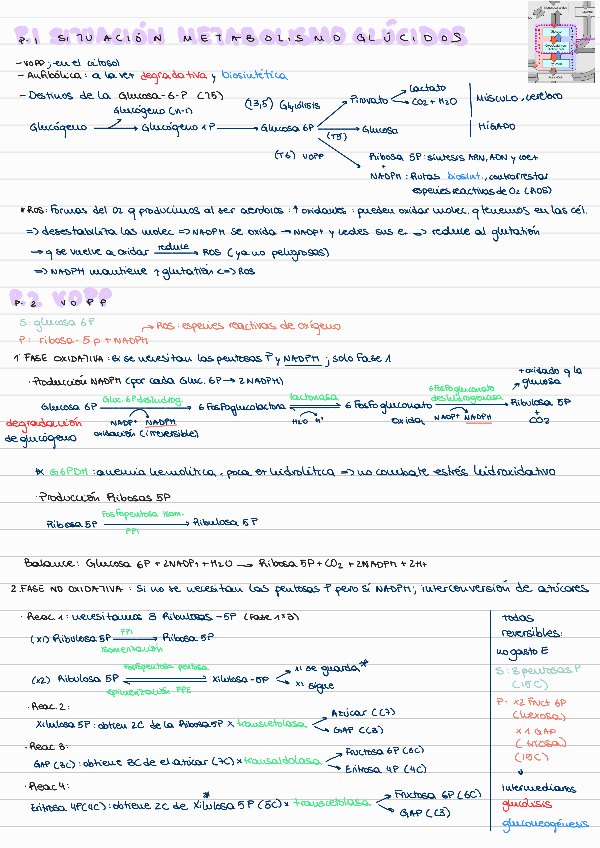 P.1 SITUACIÓN METABOLISMO GLÚCIDOS
- VOPP; en el citosol
- Anfibólica: a la vez degradativa y biosintética
- Destinos de la Glucosa-6-P (T5)
Glucógeno (n-1)
Glucógeno → Glucógeno 1P → Glucosa 6P
(T3,5) Glucólisis → Piruvato
Lactato
CO2 + H2O
MÚSCULO, cerebro
(T5) Glucosa
HÍGADO
(T6) VOPP
Ribosa 5P: síntesis ARN, ADN y coet
+
NADPH: Rutas biosínt., contrarrestar
especies reactivas de O2 (ROS)
* ROS: Formas del O2 q producimos al ser aerobios: ↑ oxidantes: pueden oxidar molec. q tenemos en las cél.
=> desestabiliza las molec => NADPH se oxida → NADP+ y cedes sus e- => reduce al glutatión
→ q se vuelve a oxidar reduce → ROS (ya no peligrosas)
=> NADPH mantiene ↑ glutatión <=> ROS
P.2 VOPP
S: glucosa 6P
→ ROS: especies reactivas de oxígeno
P: ribosa-5p + NADPH
1. FASE OXIDATIVA: si se necesitan las pentosas P y NADPH; solo Fase 1
· Producción NADPH (por cada Gluc. 6P → 2NADPH)
+ oxidado q la
glucosa
Glucosa 6P Gluc. 6P deshidrog. → 6 Fosfoglucolactona lactonasa 6 Fosfogluconato 6 Fosfogluconato deshidrogenasa → Ribulosa 5P
+
CO2
degradación
de glucógeno
NADP+ NADPH
oxidación (irreversible)
H2O H+
Oxida.
NADP+ NADPH
* G6PDH: anemia hemolítica, poca er hidrolítica => no combate estrés hidroxidativo
· Producción Ribosas 5P
Ribosa 5P Fosfopentosa isom. FPI → Ribulosa 5P
Balance: Glucosa 6P + 2NADP+ + H2O → Ribosa 5P + CO2 + 2NADPH + 2H+
2. FASE NO OXIDATIVA: Si no se necesitan las pentosas P pero sí NADPH; interconversión de azúcares
· Reac 1: necesitamos 3 Ribulosas-5P (Fase 1 x3)
(x1) Ribulosa 5P FPI → Ribosa 5P
isomerización
(x2) Ribulosa 5P Fosfopentosa pentosa epimerización FPE Xilulosa-5P
x1 se guarda *
x1 sigue
· Reac 2:
Xilulosa 5P: obtien 2C de la Ribosa 5P x transcetolasa
Azúcar (C7)
GAP (C3)
· Reac 3:
GAP (3C): obtiene 3C de el azúcar (7C) x transaldolasa
Fructosa 6P (6C)
Eritrosa 4P (4C)
· Reac 4:
Eritrosa 4P (4C): obtiene 2C de Xilulosa 5P (5C) x transcetolasa
Fructosa 6P (6C)
GAP (C3)
todas
reversibles:
no gasto E
S: 3 pentosas P
(15C)
P: x2 Fruct 6P
(hexosa)
x1 GAP
(triosa)
(15C)
intermediarios
glucólisis
gluconeogénesis